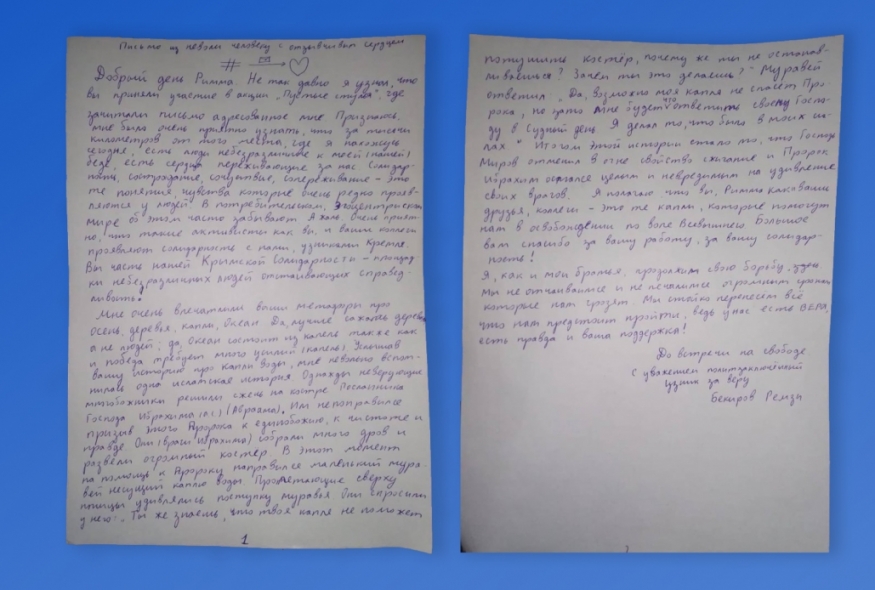 Письмо из неволи человеку с отзывчивым сердцем
# СП →
Добрый день Римма. Не так давно я узнал, что
вы приняли участие в акции „Пустые стулья", где
зачитали письмо адресованное мне. Признаюсь,
мне было очень приятно узнать, что за тысячи
километров от того места, где я нахожусь
сегодня, есть люди небезразличные к моей (нашей)
беде, есть сердца переживающие за нас. Солидар-
ность, сострадание, сочувствие, сопереживание – это
те понятия, чувства которые очень редко прояв-
ляются у людей. В потребительском, эгоцентристском
мире об этом часто забывают. А жаль. Очень прият-
но, что такие активисты как вы, и ваши коллеги
проявляют солидарность с нами, узниками Кремля.
Вы часть нашей Крымской Солидарности – площад-
ки небезразличных людей отстаивающих справед-
ливость.
Мне очень впечатлили ваши метафоры про
осень, деревья, капли, океан. Да, лучше сажать деревья
а не людей; да, океан состоит из капель так же как
и победа требует много усилий (капель). Услышав
вашу историю про капли воды, мне невольно вспом-
нилась одна исламская история. Однажды неверующие
многобожники решили сжечь на костре Посланника
Господа Ибрахима (а.с.) (Авраама). Им не понравился
призыв этого Пророка к единобожию, к чистоте и
правде. Они (враги Ибрахима) собрали много дров и
развели огромный костер. В этот момент
на помощь к Пророку направился маленький мура-
вей несущий каплю воды. Пролетающие сверху
птицы удивлялись поступку муравья. Они спросили
у него: „Ты же знаешь, что твоя капля не поможет
1
потушить костёр, почему же ты не останав-
ливаешься? Зачем ты это делаешь?" Муравей
ответил „Да, возможно моя капля не спасет Про-
рока, но зато мне будет что ответить своему Госпо-
ду в Судный день. Я делал то, что было в моих си-
лах". Итогом этой истории стало то, что Господь
Миров отменил в огне свойство сжигание и Пророк
Ибрахим остался целым и невредимым на удивление
своих врагов. Я полагаю что вы, Римма, как и ваши
друзья, коллеги – это те капли, которые помогут
нам в освобождении по воле Всевышнего. Большое
вам спасибо за вашу работу, за вашу солидар-
ность!
Я, как и мои братья, продолжим свою борьбу.
Мы не отчаиваемся и не печалимся огромным срокам
которые нам грозят. Мы стойко перенесем всё
что нам предстоит пройти, ведь у нас есть вера,
есть правда и ваша поддержка!
До встречи на свободе
С уважением политзаключенный
Узник за веру
Бекиров Ремзи